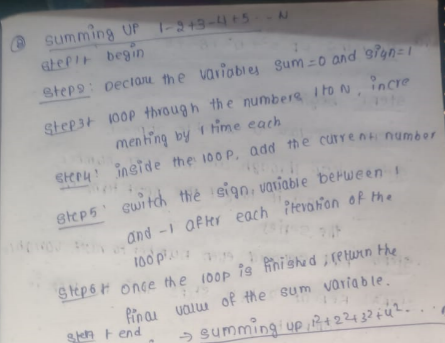 ⑧ summing up 1-2+3-4+5 ... N
step1: begin
step2: Declare the variables sum=0 and sign=1
step3: loop through the numbers 1 to N, incre
menting by 1 time each
step4: inside the loop, add the current number
step5: switch the sign, variable between 1
and -1 after each iteration of the
loop
step6: once the loop is finished, return the
final value of the sum variable.
step7: end
→ summing up, 1²+2²+3²+4²....